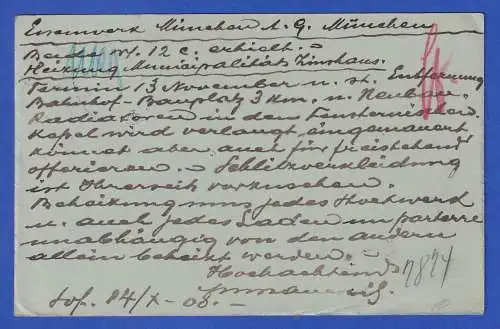 Eisenwerk München A. G. München
Beide M. 12 c. erhielt. –
Heizung Municipalität Zinshaus.
Termin 13 November n. st. Entfernung
Bahnhof – Bauplatz 3 km. u. Neubau.
Radiatoren in den Fensternischen.
Kessel wird verlangt eingemauert
könnet aber auch für freistehend
offerieren. – Schlitzverkleidung
ist Ihrerseits vorzusehen.
Beheizung muss jedes Stockwerk
u. auch jedes Laden im parterre
unabhängig von den andern
allein beheizt werden. –
Hochachtend
Sof. 24/X – 08. –
7874